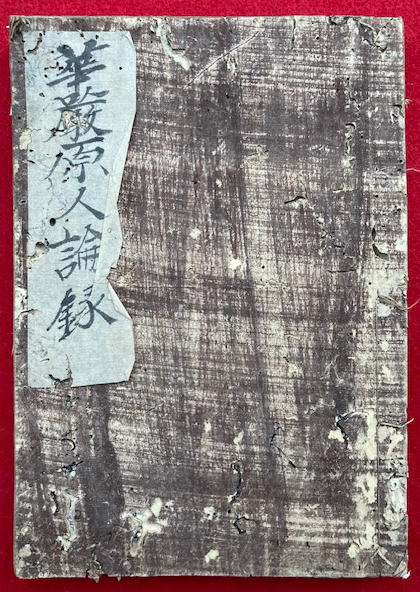 華嚴原人論録